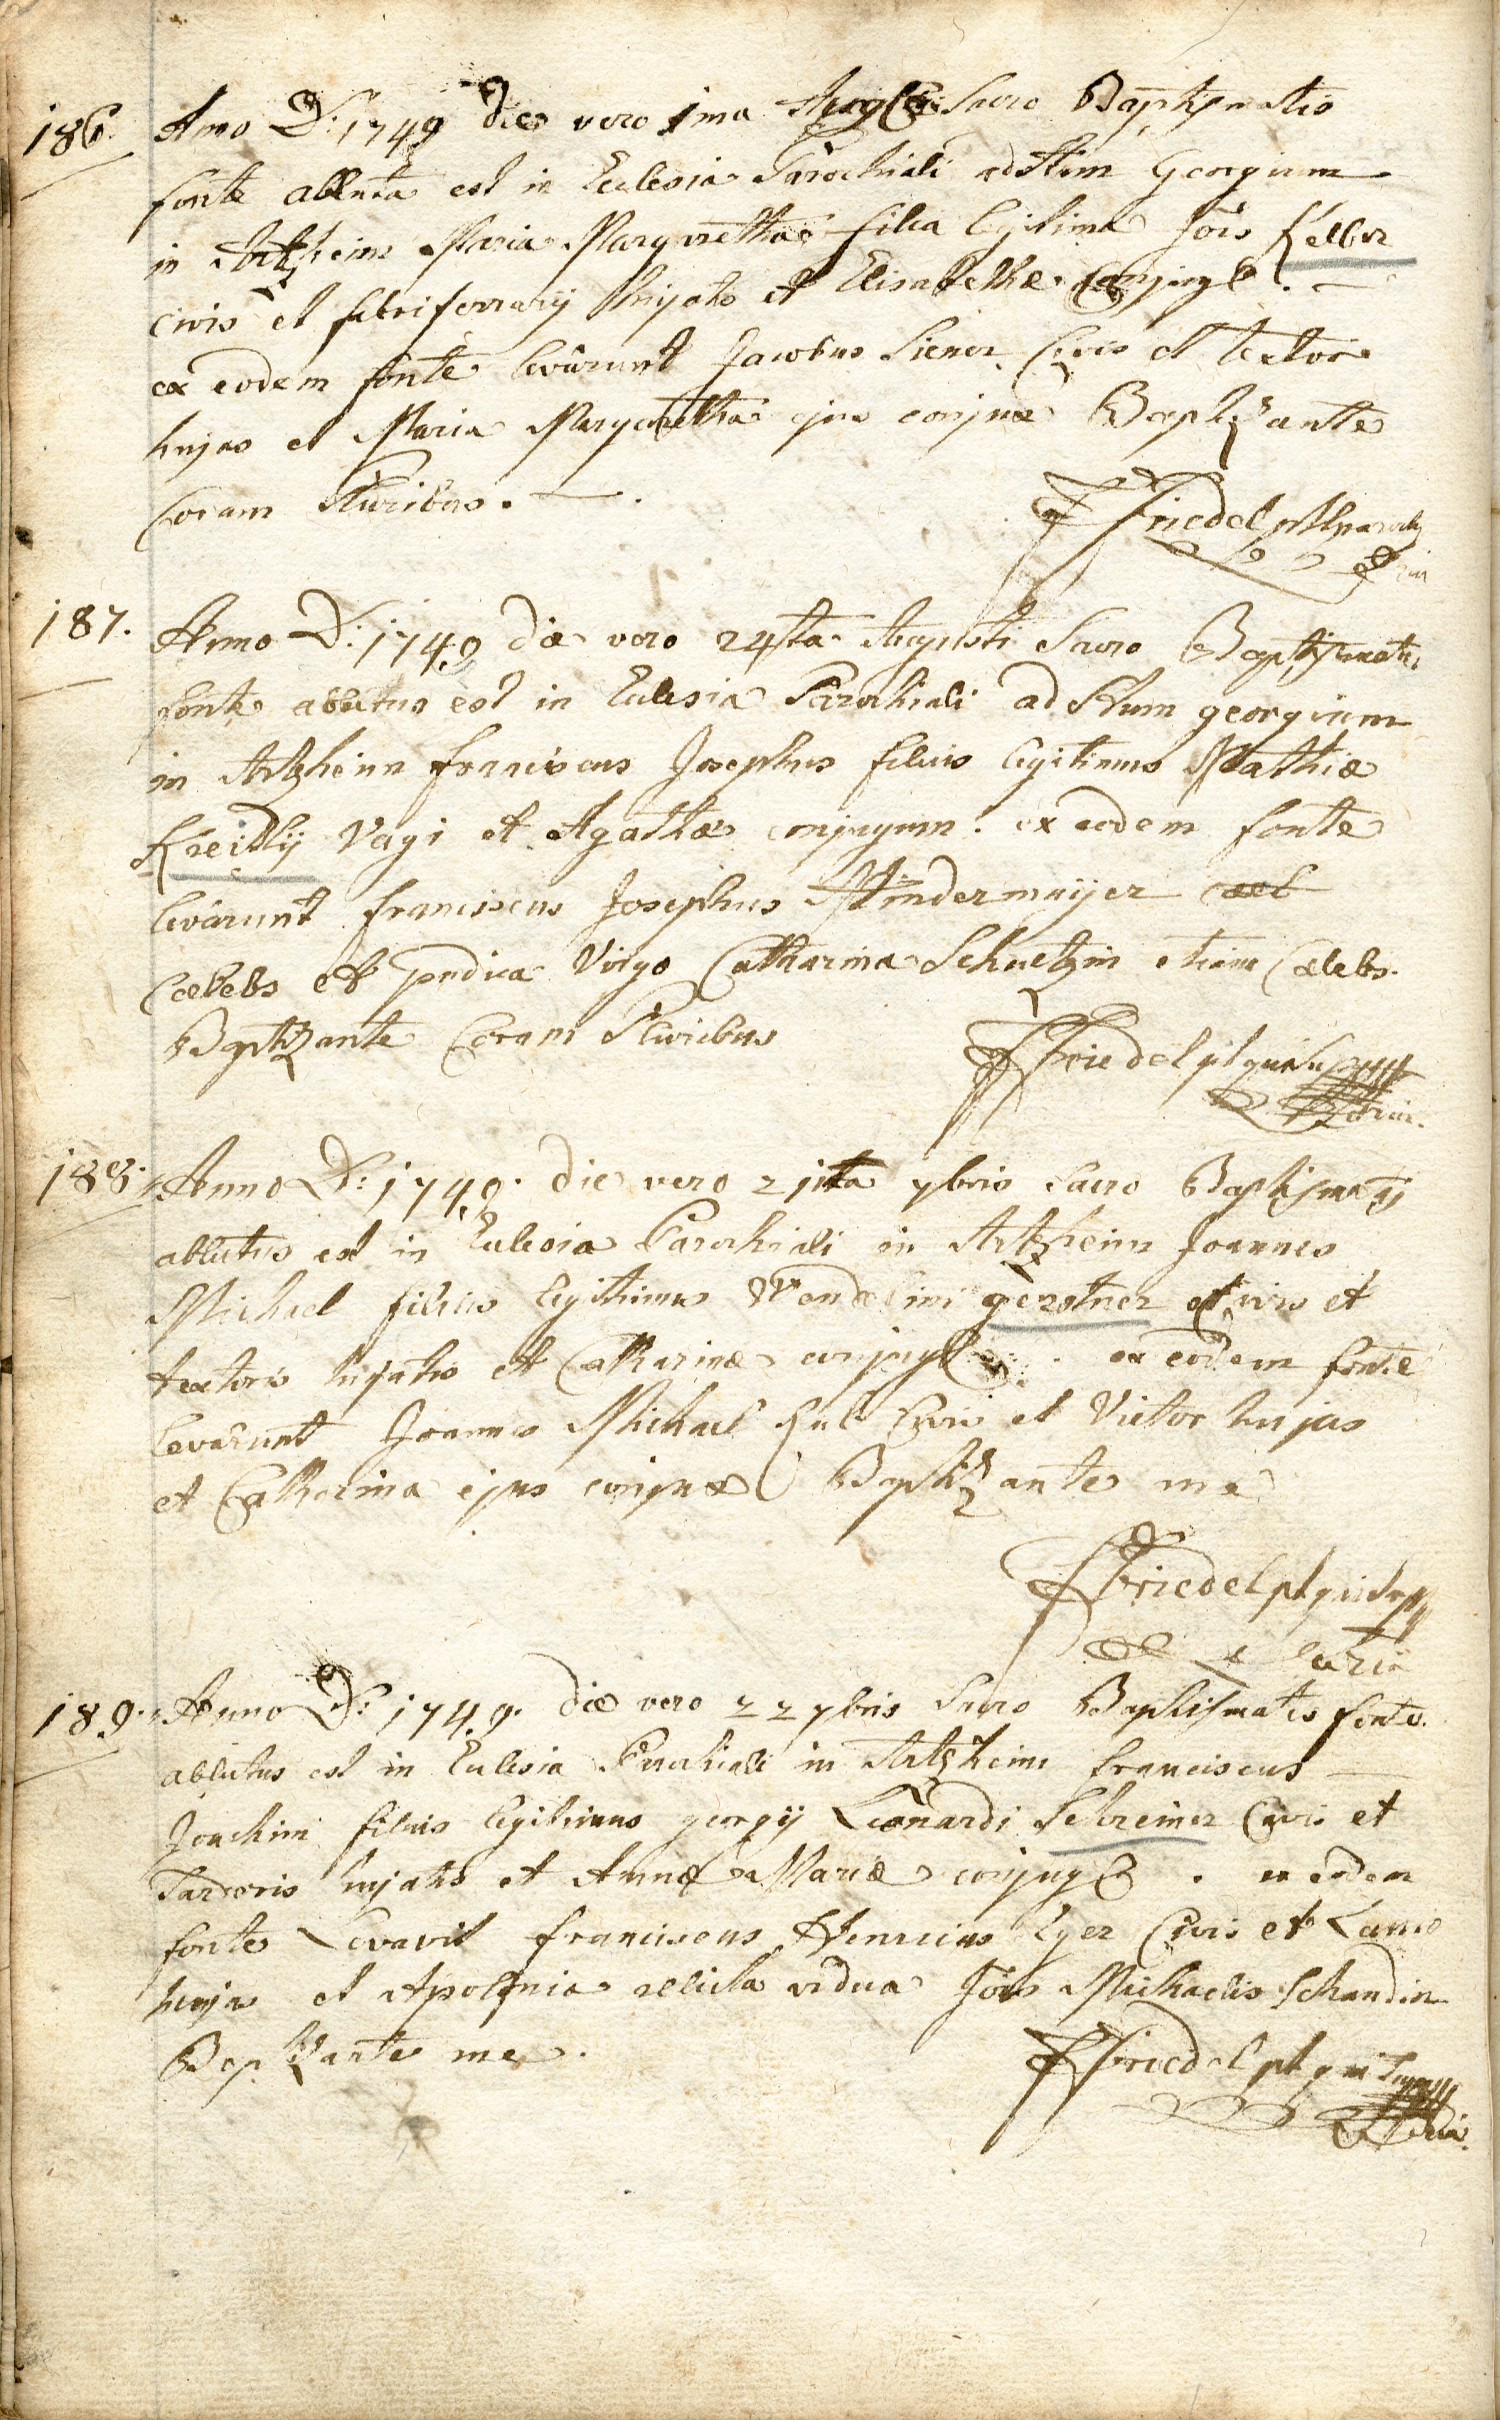 186. Anno D: 1749 die vero 1ma Augusti Sacro Baptismatis
fonte abluta est in Ecclesia Parochiali ad Stum Georgium
in Artzheim Maria Margaretha filia legitima Jois Keller
civis et fabri ferrarij hujatis et Elisabethæ conjugum. —
ex eodem fonte levarunt Jacobus Siener Civis et textor
hujas et Maria Margaretha ejus conjux Baptizante
Coram Pluribus. —.
Friedel
187. Anno D: 1749 die vero 24ta Augusti Sacro Baptismatis
fonte ablutus est in Eclesia Parochiali ad Stum georgium
in Artzheim franciscus Josephus filius legitimus Mathiæ
Kreitlij Vagi et Agathæ conjugum. ex eodem fonte
levarunt franciscus Josephus Mindermayer cael
Coelebs et pudica Virgo Catharina Schuetzin etiam Cælebs.
Baptizante Coram Pluribus
Friedel
188. Anno D: 1749. die vero 21ta 7bris sacro Baptismatis
ablutus est in Eclesia Parochiali in Artzheim Joannes
Michael filius legitimus Wendelini gerstner et civis et
textoris hujatis et Catharinæ conjugum. ex eodem fonte
levarunt Joannes Michael Civis et Vietor hujas
et Catharina ejus conjux Baptizante me
Friedel
189. Anno D: 1749. die vero 22 7bris Sacro Baptismatis fonte
ablutus est in Eclesia Parochiali in Artzheim franciscus —
Joachim filius legitimus georgij Leonardi Schreiner Civis et
Sartoris hujatis et Annæ Mariæ conjugum. ex eodem
fonte Levavit franciscus Henricus Eyer Civis et Lanio
hujas et Apolonia relicta vidua Jois Michaelis Schandin
Baptizante me.
Friedel